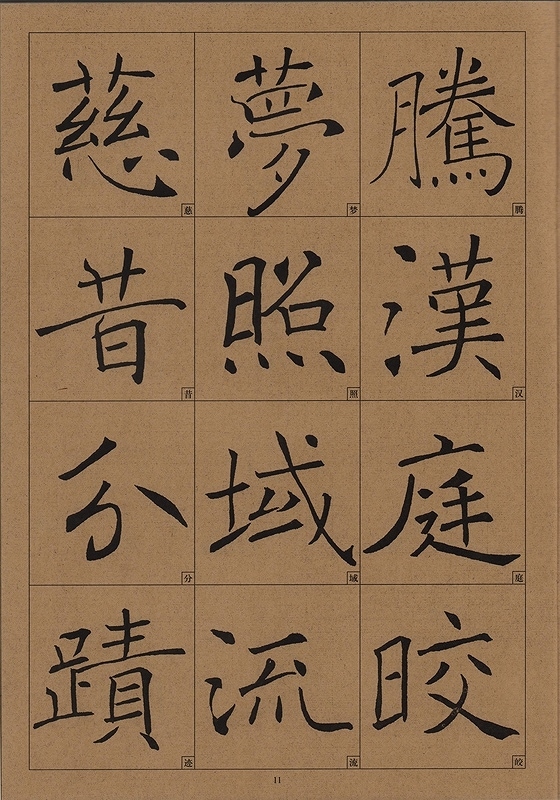 騰
腾
漢
汉
庭
庭
晈
皎
夢
梦
照
照
域
域
流
流
慈
慈
昔
昔
分
分
蹟
迹
11